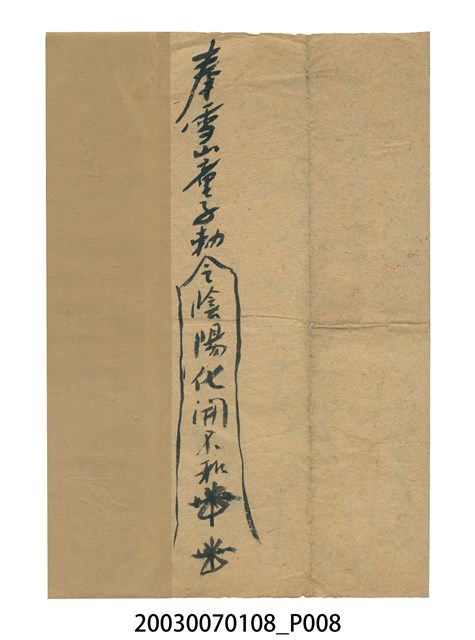 奉雪山童子勅令陰陽化開不和
20030070108_P008